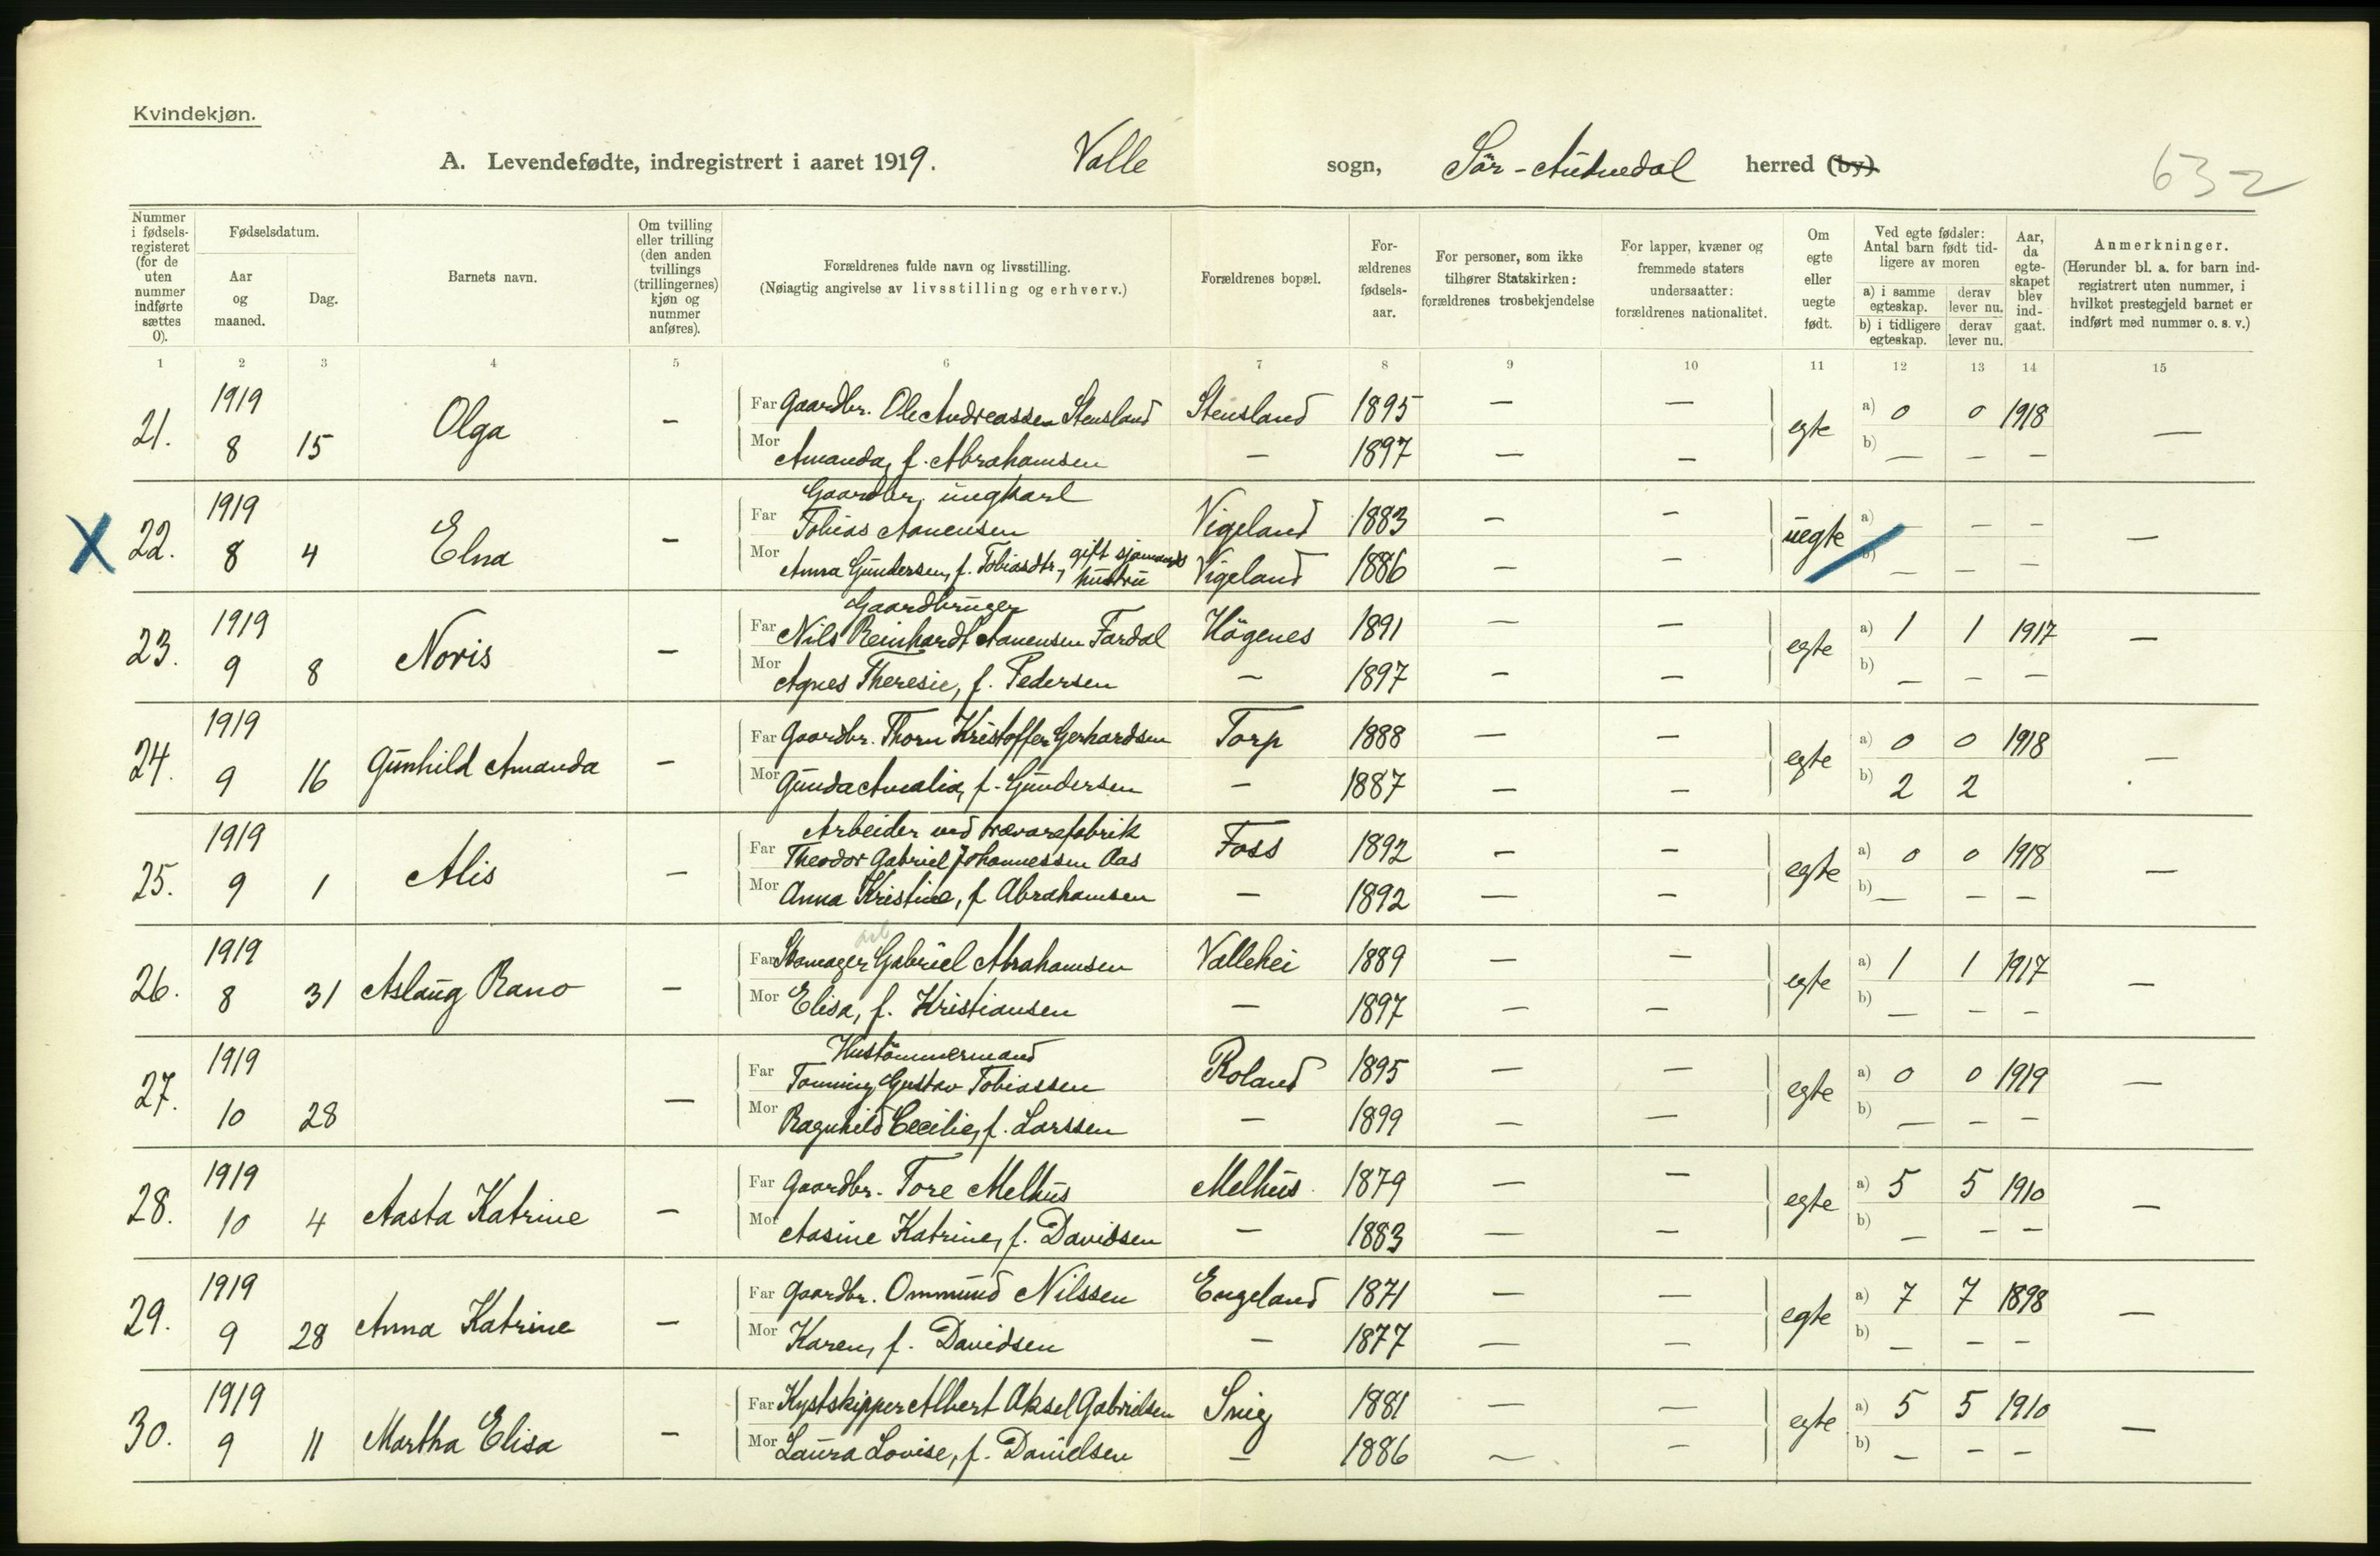 Kvindekjøn.
A. Levendefødte, indregistrert i aaret 1919. Valle sogn, Sör-Audnedal herred (by)
632
Nummer i fødsels-registeret (for de uten nummer indførte sættes 0).
Fødselsdatum.
Aar og maaned.
Dag.
Barnets navn.
Om tvilling eller trilling (den anden tvillings (trillingernes) kjøn og nummer anføres).
Forældrenes fulde navn og livsstilling.
(Nøiagtig angivelse av livsstilling og erhverv.)
Forældrenes bopæl.
For-ældrenes fødsels-aar.
For personer, som ikke tilhører Statskirken: forældrenes trosbekjendelse
For lapper, kvæner og fremmede staters undersaatter: forældrenes nationalitet.
Om egte eller uegte født.
Ved egte fødsler: Antal barn født tid-ligere av moren
a) i samme egteskap.
derav lever nu.
b) i tidligere egteskap.
derav lever nu.
Aar, da egte-skapet blev ind-gaat.
Anmerkninger.
(Herunder bl. a. for barn ind-registrert uten nummer, i hvilket prestegjeld barnet er indført med nummer o. s. v.)
1 2 3 4 5 6 7 8 9 10 11 12 13 14 15
21. 1919 8 15 Olga — Far Gaardbr. Ole Andreassen Stensland Stensland 1895 — — egte a) 0 0 1918 —
Mor Amanda, f. Abrahamsen — 1897 — — b) — — —
X 22. 1919 8 4 Elna — Gaardbr, ungkarl
Far Tobias Aanensen Vigeland 1883 — — uegte a) — — — —
Mor Anna Gundersen, f. Tobiasdtr, gift sjømands hustru Vigeland 1886 — — b) — — —
23. 1919 9 8 Noris — Gaardbruger
Far Nils Reinhardt Aanensen Fardal Högenes 1891 — — egte a) 1 1 1917 —
Mor Agnes Theresie, f. Pedersen — 1897 — — b) — — —
24. 1919 9 16 Gunhild Amanda — Far Gaardbr. Thorn Kristoffer Gerhardsen Torp 1888 — — egte a) 0 0 1918 —
Mor Gunda Amalia, f. Gundersen — 1887 — — b) 2 2
25. 1919 9 1 Alis — Arbeider ved trævarefabrik
Far Theodor Gabriel Johannessen Aas Foss 1892 — — egte a) 0 0 1918 —
Mor Anna Kristine, f. Abrahamsen — 1892 — — b) — — —
26. 1919 8 31 Aslaug Rano — Far Skomager Gabriel Abrahamsen Vallehei 1889 — — egte a) 1 1 1917 —
Mor Elisa, f. Kristiansen — 1897 — — b) — — —
27. 1919 10 28 — Hustömmermand
Far Tønning Gustav Tobiassen Roland 1895 — — egte a) 0 0 1919 —
Mor Ragnhild Cecilie, f. Larssen — 1899 — — b) — — —
28. 1919 10 4 Aasta Katrine — Far Gaardbr. Tore Melhus Melhus 1879 — — egte a) 5 5 1910 —
Mor Aasine Katrine, f. Davidsen — 1883 — — b) — — —
29. 1919 9 28 Anna Katrine — Far Gaardbr. Ommund Nilssen Engeland 1871 — — egte a) 7 7 1898 —
Mor Karen, f. Davidsen — 1877 — — b) — — —
30. 1919 9 11 Martha Elisa — Far Kystskipper Albert Aksel Gabrielsen Snig 1881 — — egte a) 5 5 1910 —
Mor Laura Lovise, f. Danielsen — 1886 — — b) — — —